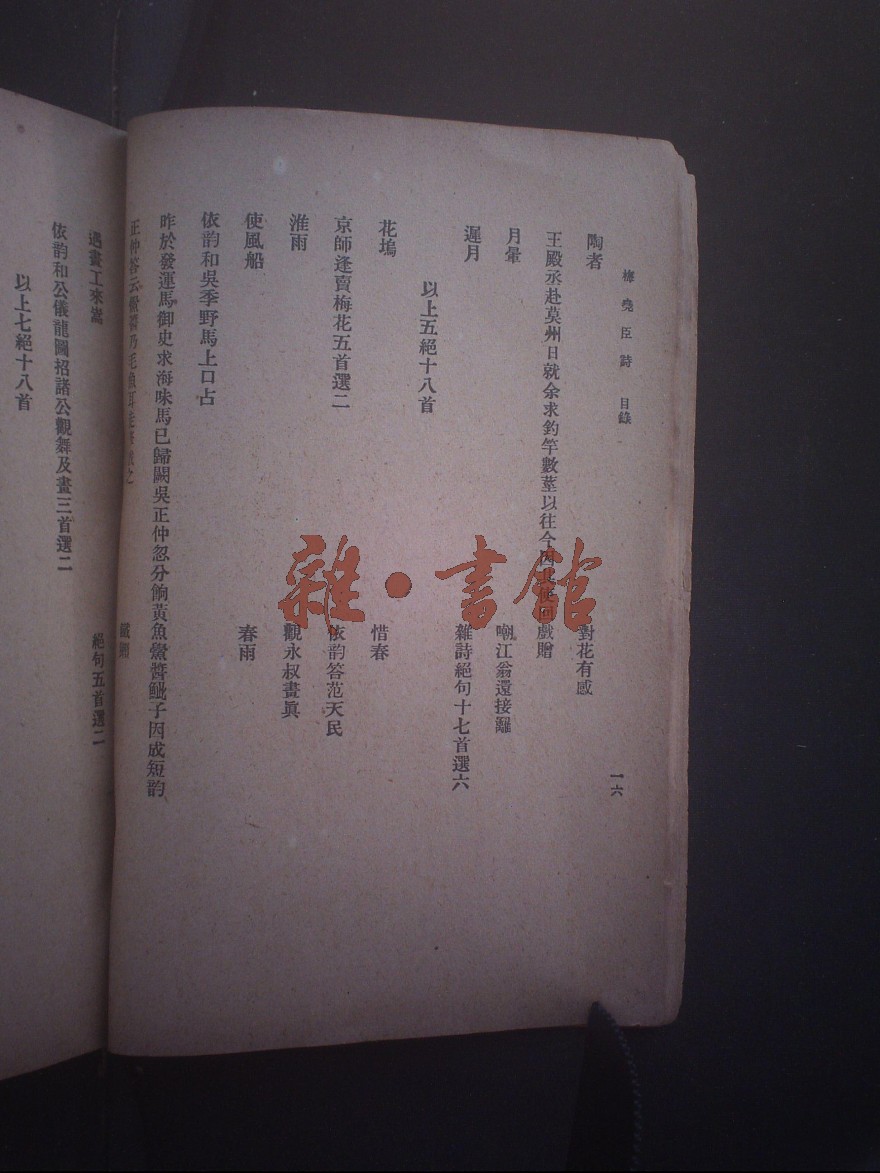 梅堯臣詩　目錄　一六
陶者　對花有感
王殿丞赴莫州日就余求釣竿數莖以往今因其使回戲贈
月暈　嘲江翁還接䍦
遲月　雜詩絕句十七首選六
以上五絕十八首
花塢　惜春
京師逢賣梅花五首選二　依韵答范天民
淮雨　觀永叔畫眞
使風船　春雨
依韵和吳季野馬上口占
昨於發運馬御史求海味馬已歸闕吳正仲忽分餉黃魚鱟醬鱡子因成短韵
正仲答云鱟醬乃毛魚耳走筆戲之
遇畫工來嵩　絕句五首選二
依韵和公儀龍圖招諸公觀舞及畫三首選二
以上七絕十八首
雜·書館